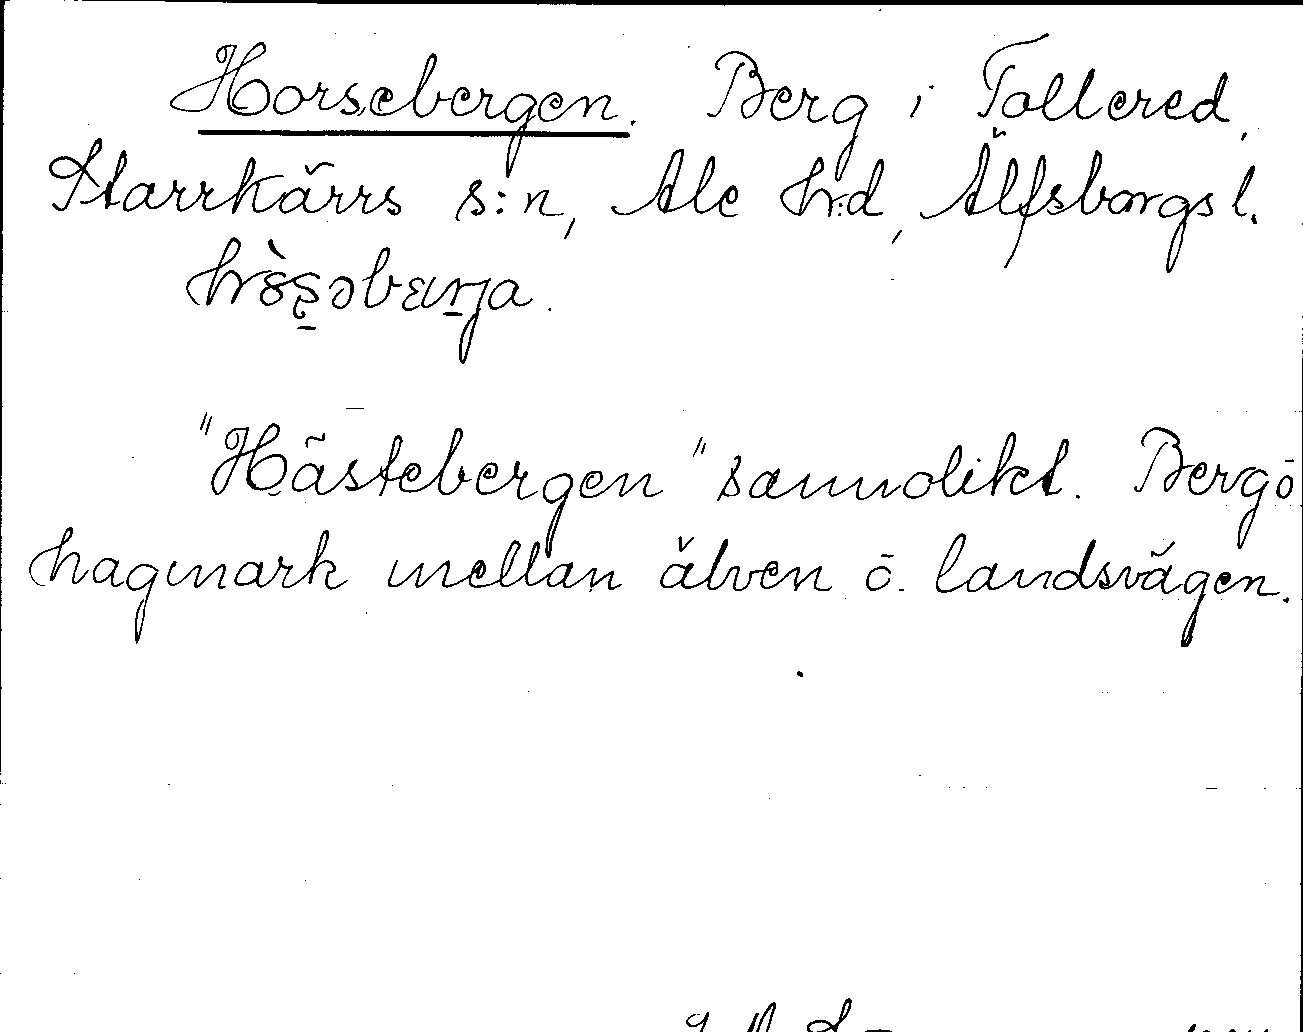 Horsebergen. Berg i Tollered,
Starrkärrs s:n, Ale h:d, Älfsborgs l.
"Hästebergen" sannolikt. Berg ō
hagmark mellan älven ō. landsvägen.